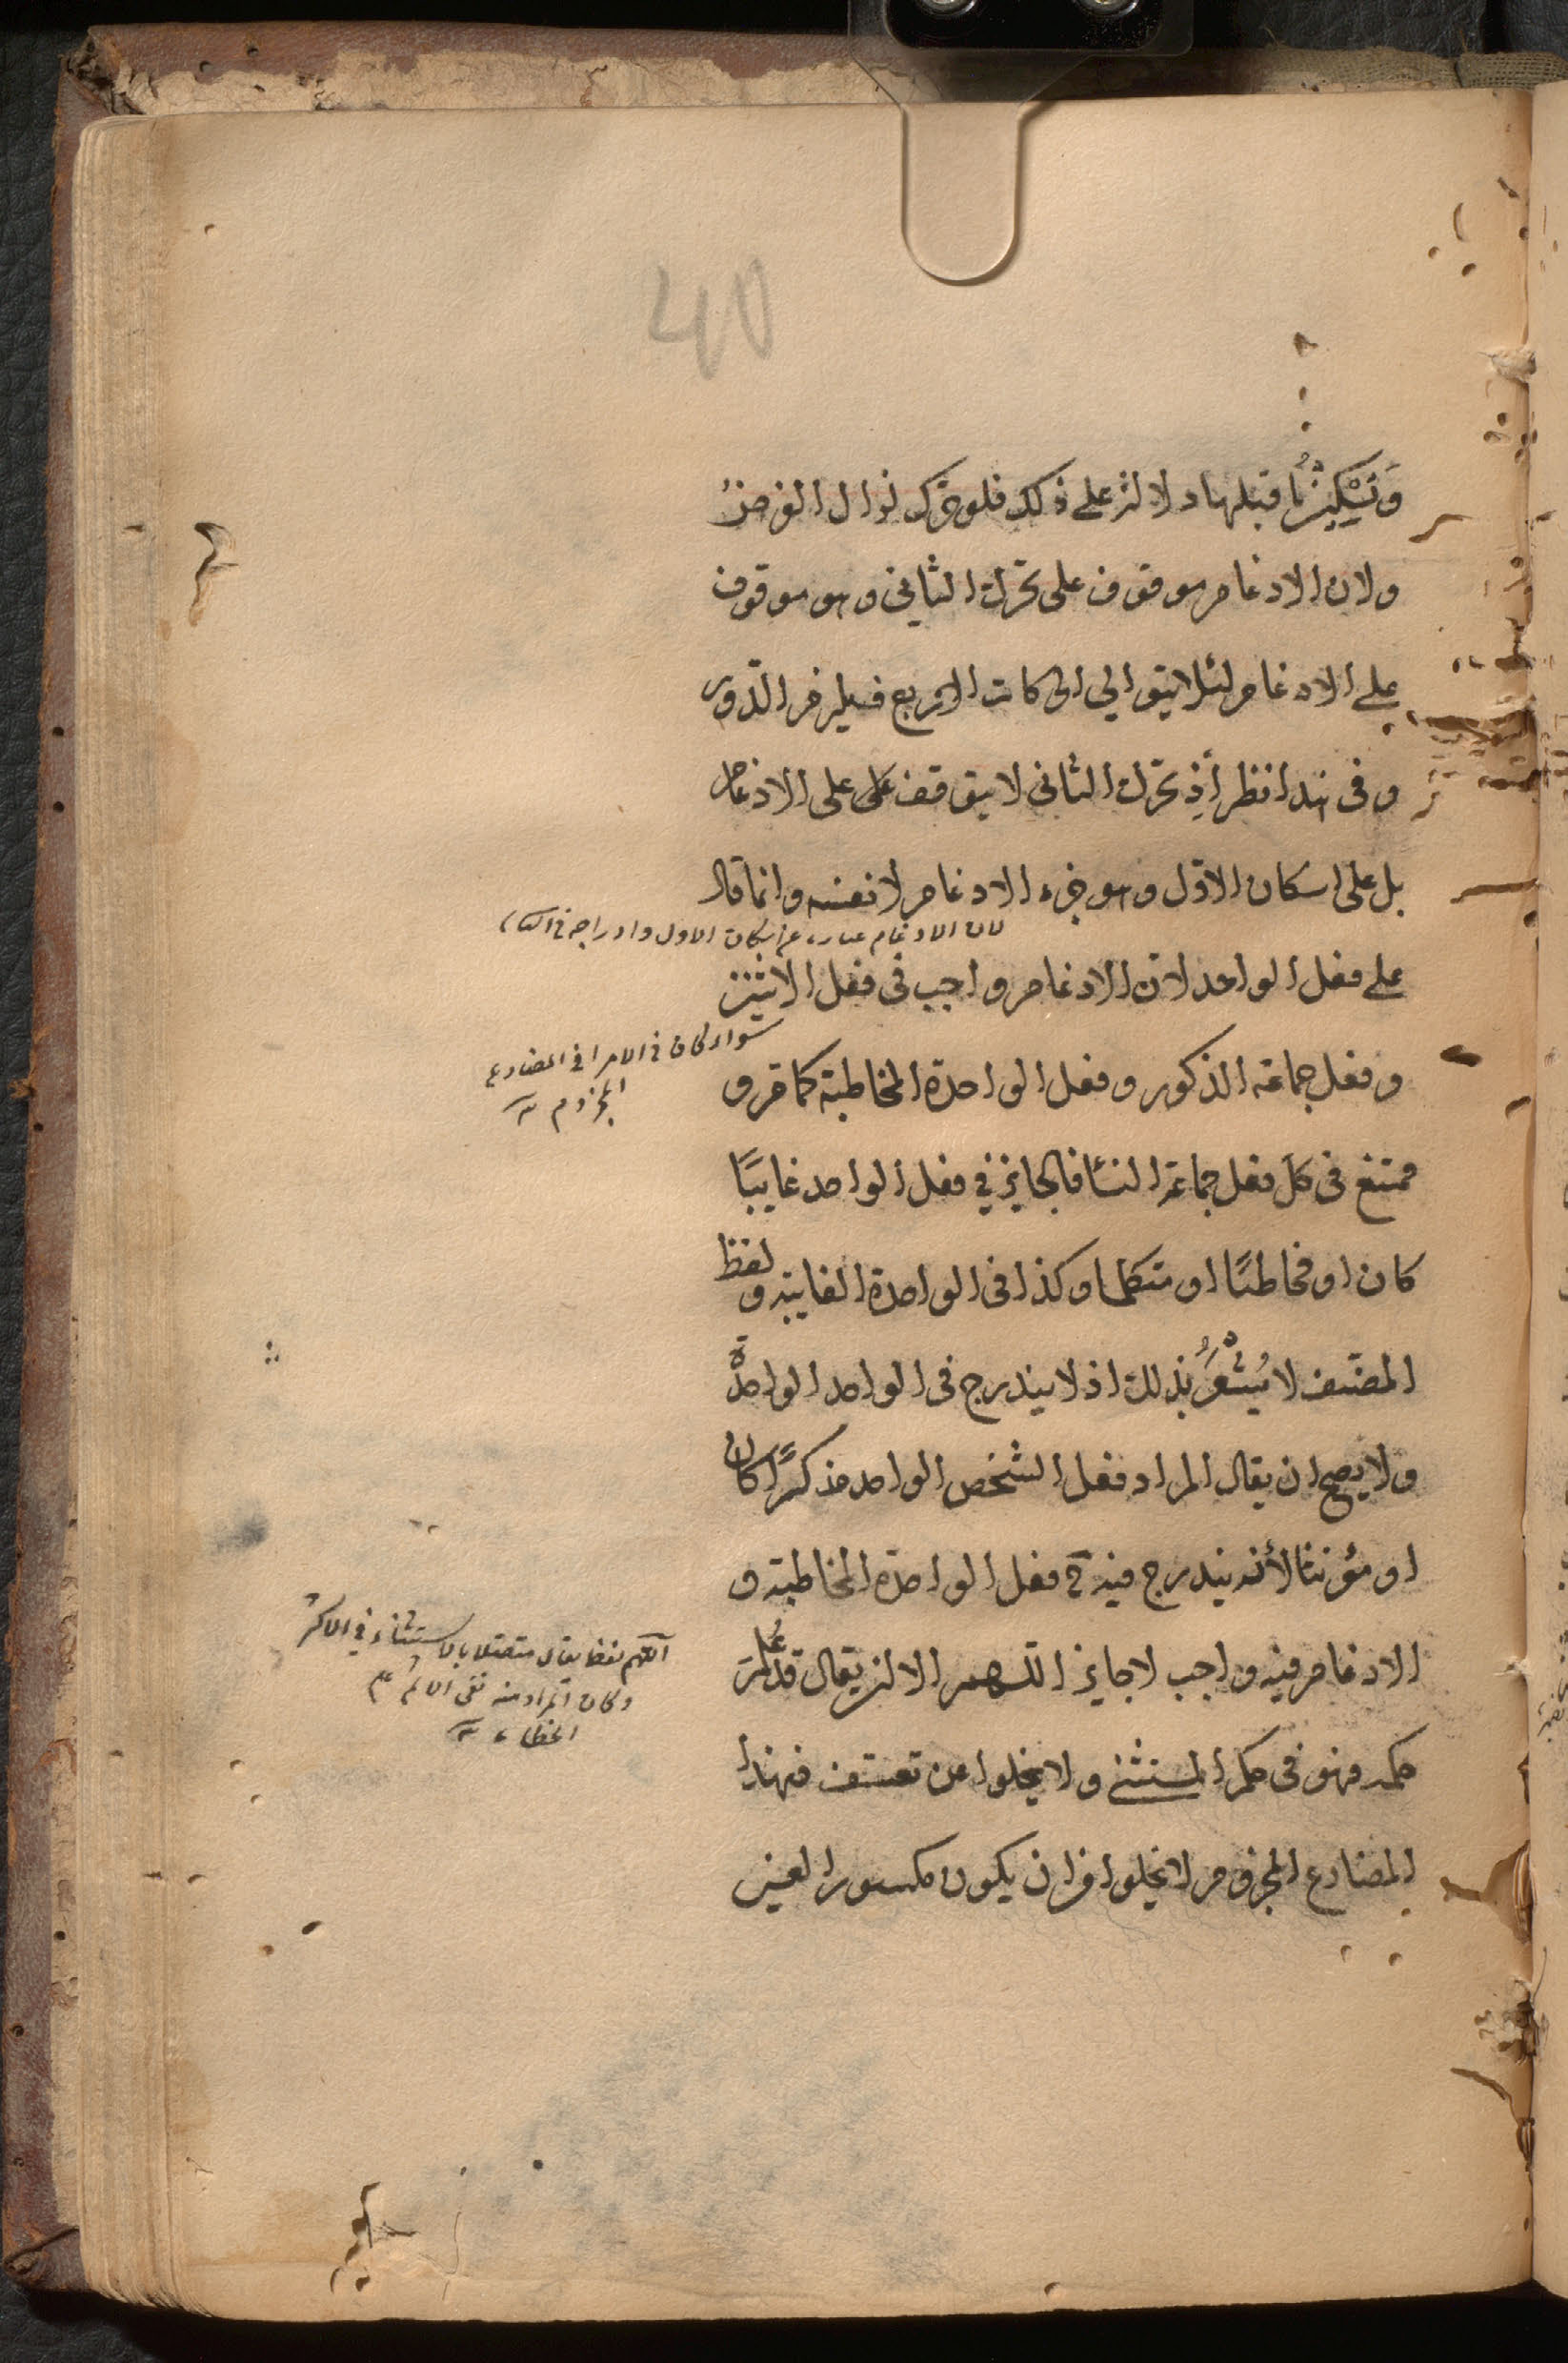 40
وَتَسْكِينُ مَا قبلها دلالة على ذلك فلو حرك لزال الغرض
ولان الادغام موقوف على تحرك الثاني وهو موقوف
على الادغام لئلا يتوالى الحركات الاربع فيلزم الدّور
وفي هذا نظر اذ تحرك الثاني لا يتوقف على على الادغام
بل على اسكان الاوّل وهو جزء الادغام لا نفسه وانما قال
لان الادغام عبارة عن اسكان الاول وادراجه في الثاني
على فعل الواحد لان الادغام واجب في فعل الاثنين
سواء كان في الامر او في المضارع
المجزوم
وفعل جماعة الذكور وفعل الواحدة المخاطبة كما مر و
ممتنع في كل فعل جماعة النسا فالجايز في فعل الواحد غايبًا
كان او مخاطبًا او متكلما وكذا في الواحدة الغايبة ولفظ
المصنّف لا يُشْعِرُ بذلك اذ لا يندرج في الواحد الواحدة
ولا يصح ان يقال المراد فعل الشخص الواحد مذكرًا كان
او مؤنثا لأنه يندرج فيه ح فعل الواحدة المخاطبة و
الادغام فيه واجب لا جايز اللهم الا ان يقال قد عُلم
اللّهم لفظ يقال متصلا بالاستثناء في الاكثر
وكان المراد منه نفي
الخطاء
حكمه فهو في حكم المستثنى ولا يخلوا عن تعسف فهذا
المضارع المجزوم لا يخلوا من ان يكون مكسور العين